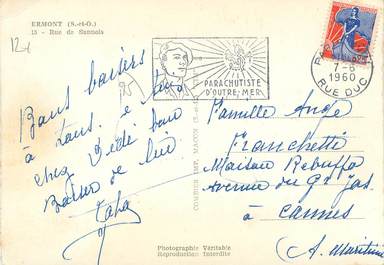 ERMONT (S.-et-O.)
13 - Rue de Sannois
12
PARACHUTISTE
D'OUTRE-MER
PARIS
7-6
1960
RUE DUC
Bons baisers
à tous. Je suis
chez Dédé bons
Baiser de lui
Famille Ange
Franchetti
Maison Rebuffo
Avenue du Gl
à Cannes
(A. Maritime
COMBIER IMP. MACON
Photographie Véritable
Reproduction Interdite